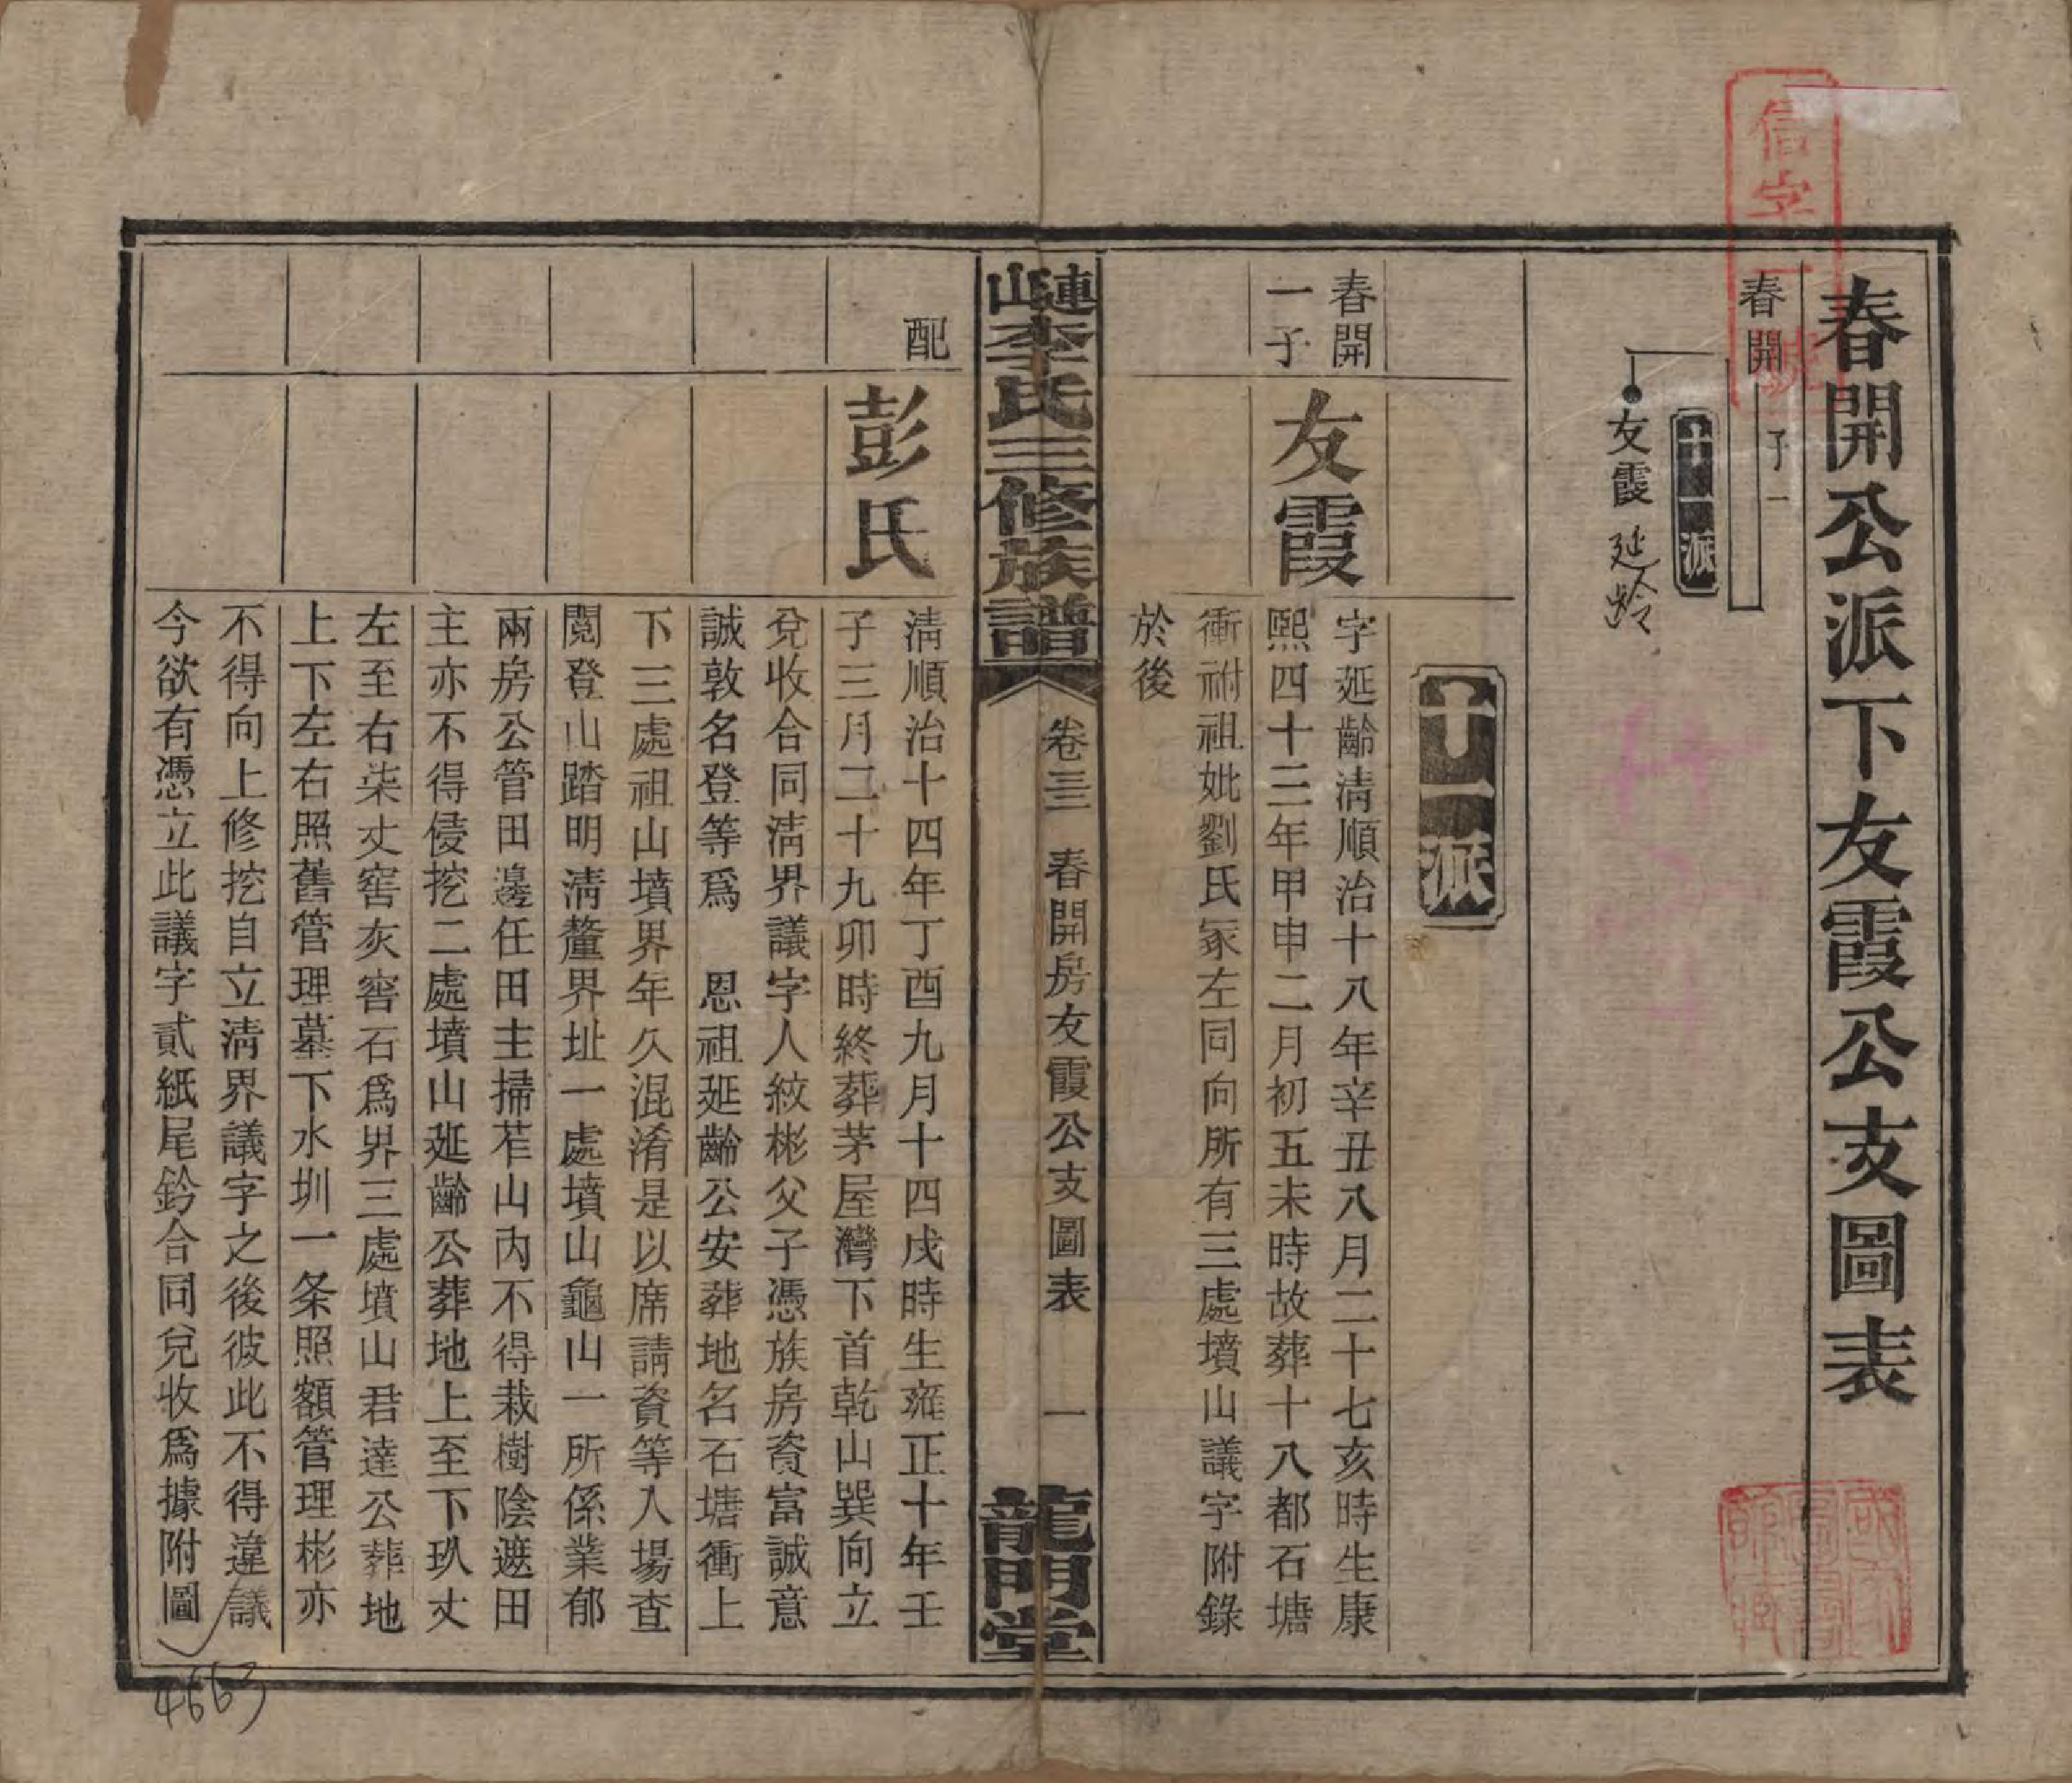 春開公派下友霞公支圖表
信字一號
春開
子一
十一派
友霞
延龄
十一派
春開
一子
友霞
字延齡淸順治十八年辛丑八月二十七亥時生康
熙四十三年甲申二月初五未時故葬十八都石塘
衝祔祖妣劉氏冢左同向所有三處墳山議字附錄
於後
漣山李氏三修族譜
卷三三
春開房友霞公支圖表
一
龍門堂
配
彭氏
淸順治十四年丁酉九月十四戌時生雍正十年壬
子三月二十九卯時終葬茅屋灣下首乾山巽向立
兌收合同淸界議字人紋彬父子憑族房資富誠意
誠敦名登等爲 恩祖延齡公安葬地名石塘衝上
下三處祖山墳界年久混淆是以席請資等入場查
閱登山踏明淸釐界址一處墳山龜山一所係業郁
兩房公管田邊任田主掃苲山內不得栽樹陰遮田
主亦不得侵挖二處墳山延齡公葬地上至下玖丈
左至右柒丈窖灰窖石爲界三處墳山君達公葬地
上下左右照舊管理墓下水圳一条照額管理彬亦
不得向上修挖自立淸界議字之後彼此不得違議
今欲有憑立此議字貳紙尾鈐合同兌收爲據附圖
4663